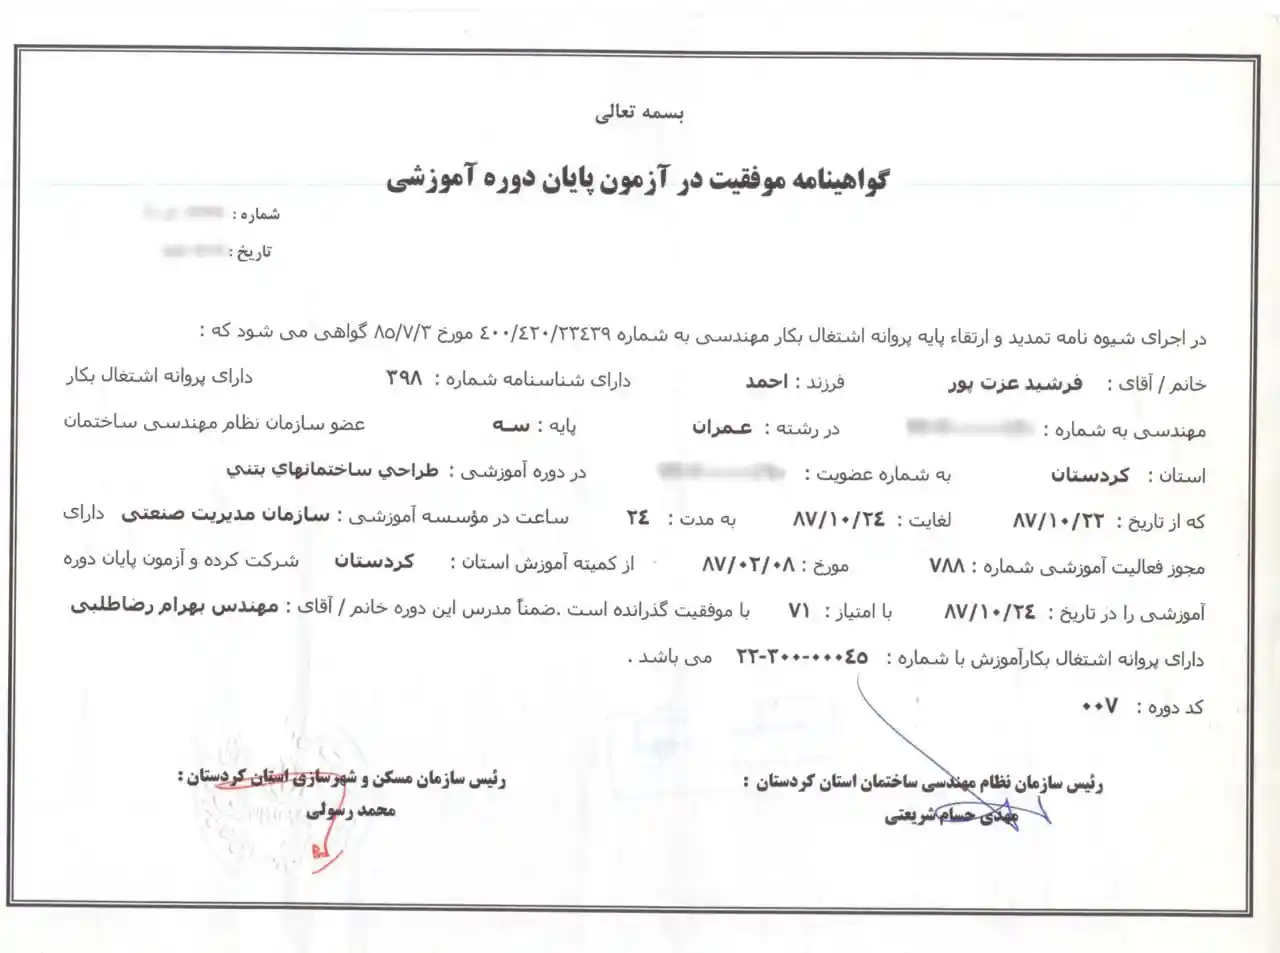 بسمه تعالی
گواهینامه موفقیت در آزمون پایان دوره آموزشی
شماره :
تاریخ :
در اجرای شیوه نامه تمدید و ارتقاء پایه پروانه اشتغال بکار مهندسی به شماره ۴۰۰/۴۲۰/۲۳۴۳۹ مورخ ۸۵/۷/۳ گواهی می شود که :
خانم / آقای : فرشید عزت پور فرزند : احمد دارای شناسنامه شماره : ۳۹۸ دارای پروانه اشتغال بکار
مهندسی به شماره : در رشته : عمران پایه : سه عضو سازمان نظام مهندسی ساختمان
استان : کردستان به شماره عضویت : در دوره آموزشی : طراحي ساختمانهاي بتني
که از تاریخ : ۸۷/۱۰/۲۲ لغایت : ۸۷/۱۰/۲۴ به مدت : ۲۴ ساعت در مؤسسه آموزشی : سازمان مدیریت صنعتی دارای
مجوز فعالیت آموزشی شماره : ۷۸۸ مورخ : ۸۷/۰۲/۰۸ از کمیته آموزش استان : کردستان شرکت کرده و آزمون پایان دوره
آموزشی را در تاریخ : ۸۷/۱۰/۲۴ با امتیاز : ۷۱ با موفقیت گذرانده است .ضمناً مدرس این دوره خانم / آقای : مهندس بهرام رضاطلبی
دارای پروانه اشتغال بکارآموزش با شماره : ۲۲-۳۰۰-۰۰۰۴۵ می باشد .
کد دوره : ۰۰۷
رئیس سازمان نظام مهندسی ساختمان استان کردستان :
مهدی حسام شریعتی
رئیس سازمان مسکن و شهرسازی استان کردستان :
محمد رسولی